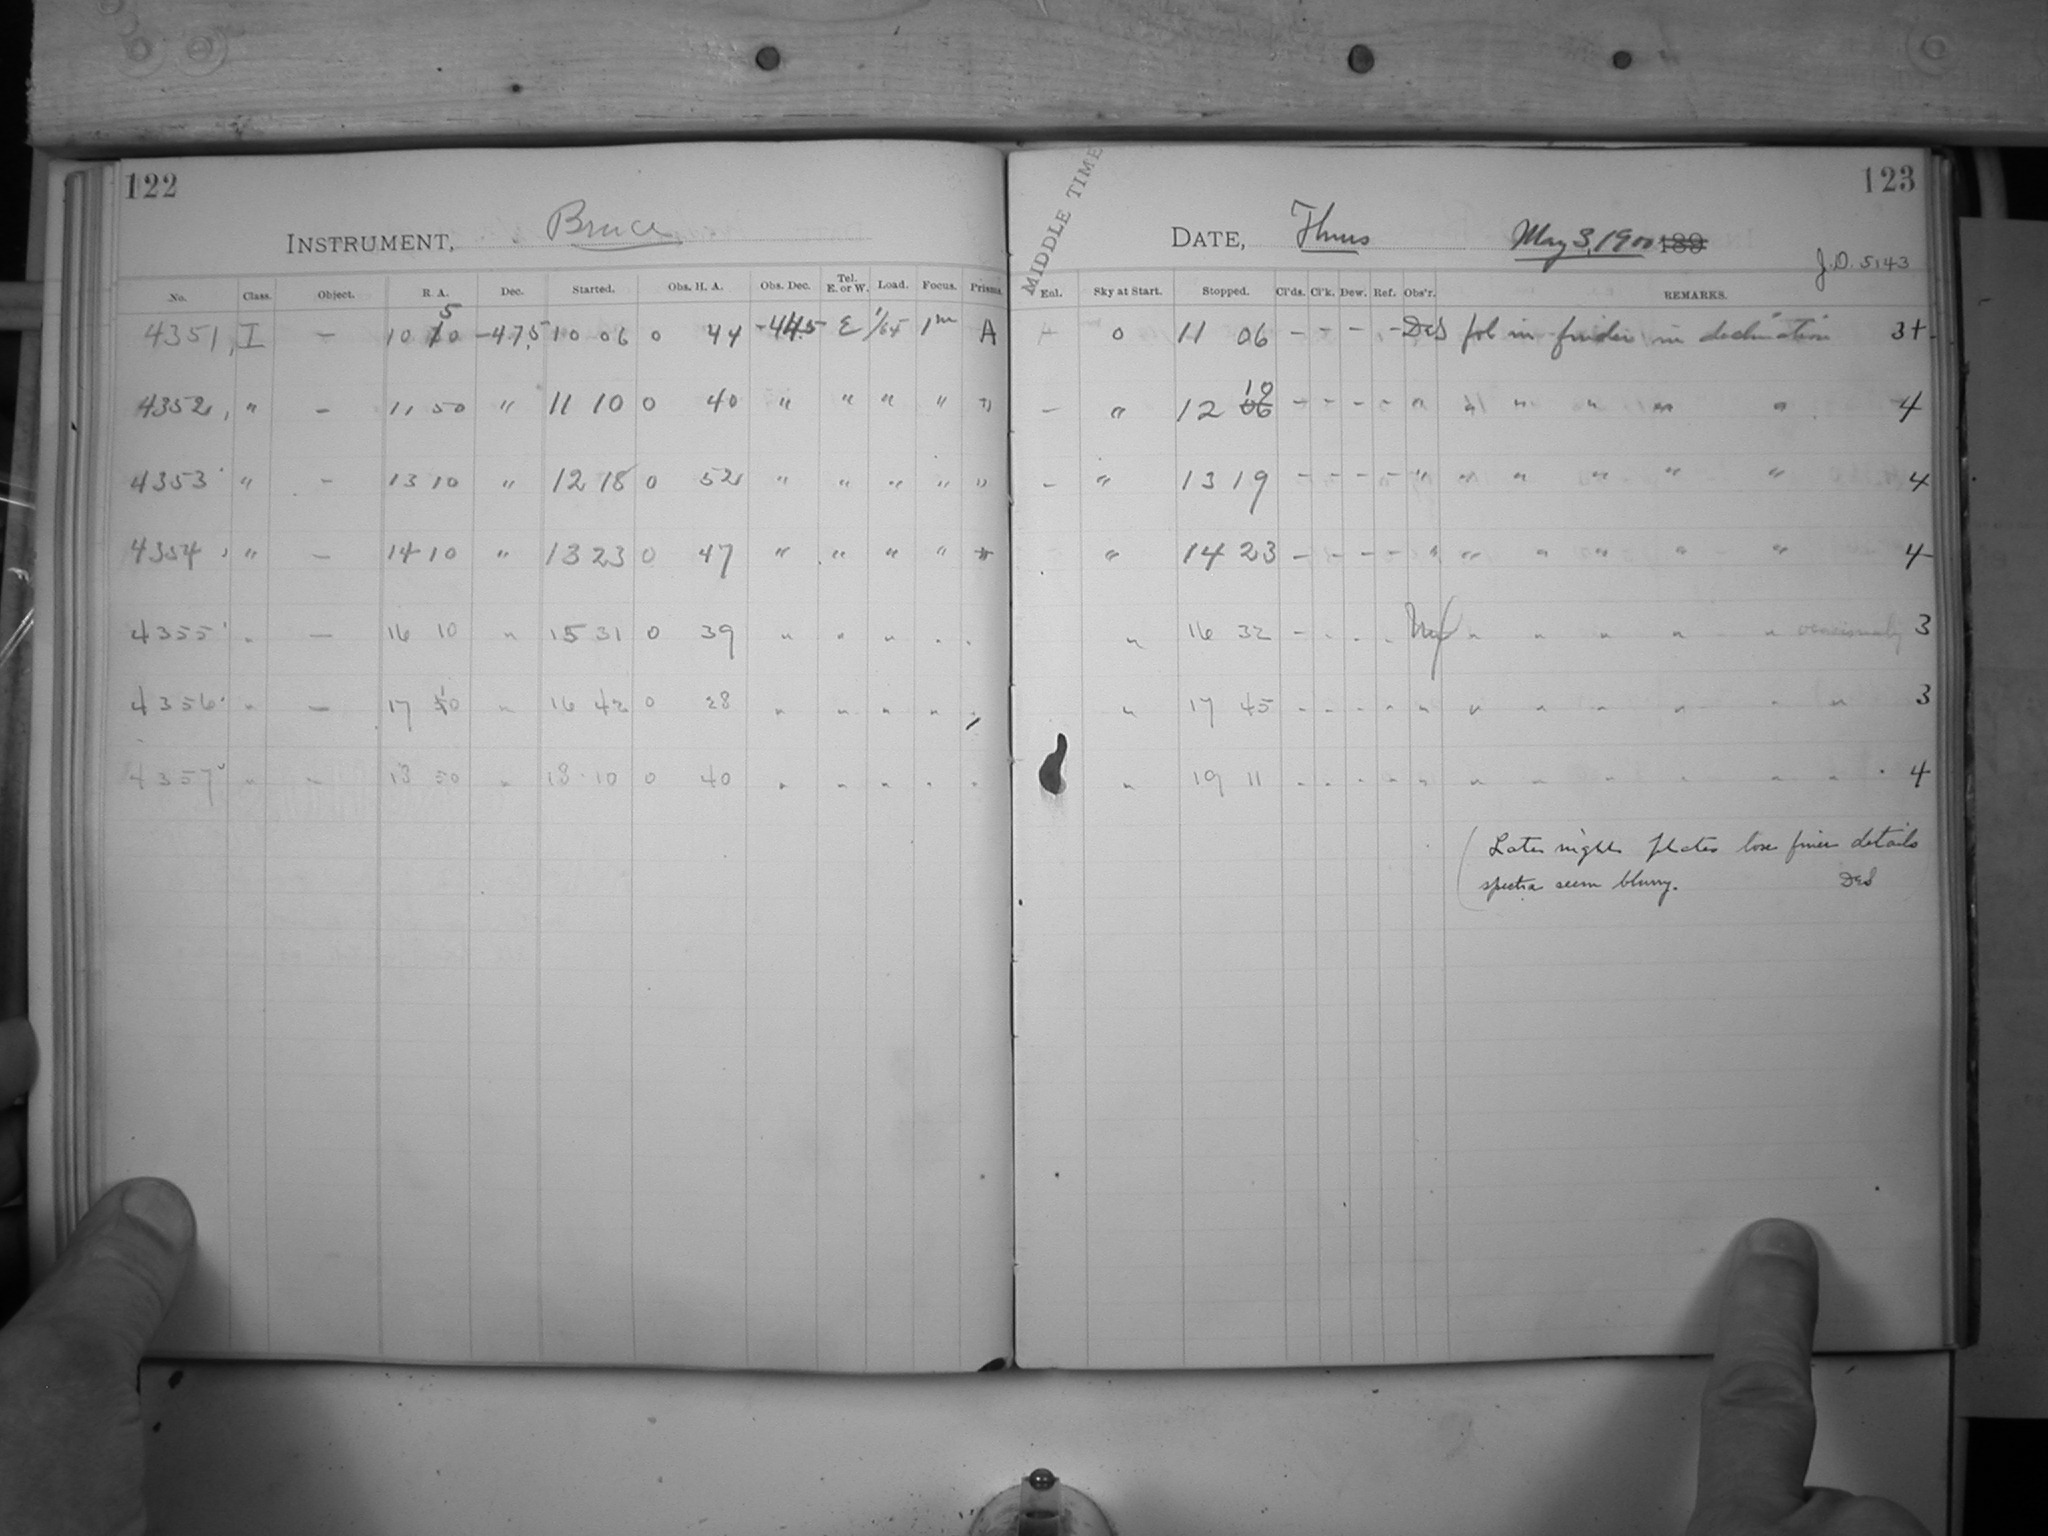 122
INSTRUMENT, Bruce
No. Class. Object. R. A. Dec. Started. Obs. H. A. Obs. Dec. Tel. E. or W. Load. Focus. Prisms
4351, I — 10 50 -47.5 10 06 0 44 -44.5 E 1m A
4352, " — 11 50 " 11 10 0 40 " " " " "
4353 " - 13 10 " 12 18 0 52 " " " " "
4354 , " — 14 10 " 13 23 0 47 " " " " "
4355 " — 16 10 " 15 31 0 39 " " " " "
4356 " — 17 10 " 16 42 0 28 " " " " "
4357 " " 18 50 " 18 10 0 40 " " " " "
123
MIDDLE TIME
DATE, Thurs May 3, 1900 189
J.D. 5143
Enl. Sky at Start. Stopped. Cl'ds. Cl'k. Dew. Ref. Obs'r. REMARKS.
0 11 06 - - - - DeS fol in finder in declination 3+
— " 12 10 06 - - - - " " " " " " 4
- " 13 19 - - - - " " " " " " 4
" 14 23 - - - - " " " " " " 4
" 16 32 - - - - " " " " " occasionally 3
" 17 45 - - - - " " " " " " " 3
" 19 11 - - - - " " " " " " " 4
Later night plates lose finer details
spectra seem blurry. DeS